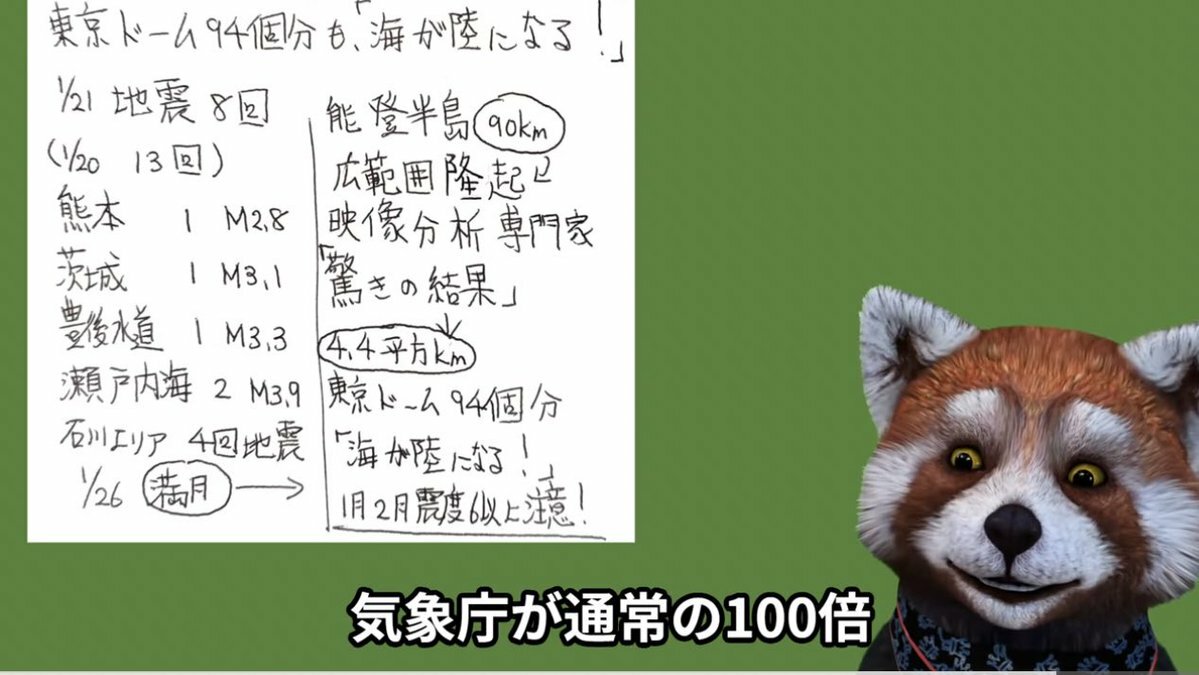 東京ドーム94個分も、「海が陸になる!」
1/21 地震 8回
(1/20 13回)
熊本 1 M2,8
茨城 1 M3,1
豊後水道 1 M3,3
瀬戸内海 2 M3,9
石川エリア 4回地震
1/26 満月 →
能登半島 90km
広範囲隆起
映像分析専門家
「驚きの結果」
4,4平方km
東京ドーム94個分
「海が陸になる!」
1月2月震度6以上注意!
気象庁が通常の100倍